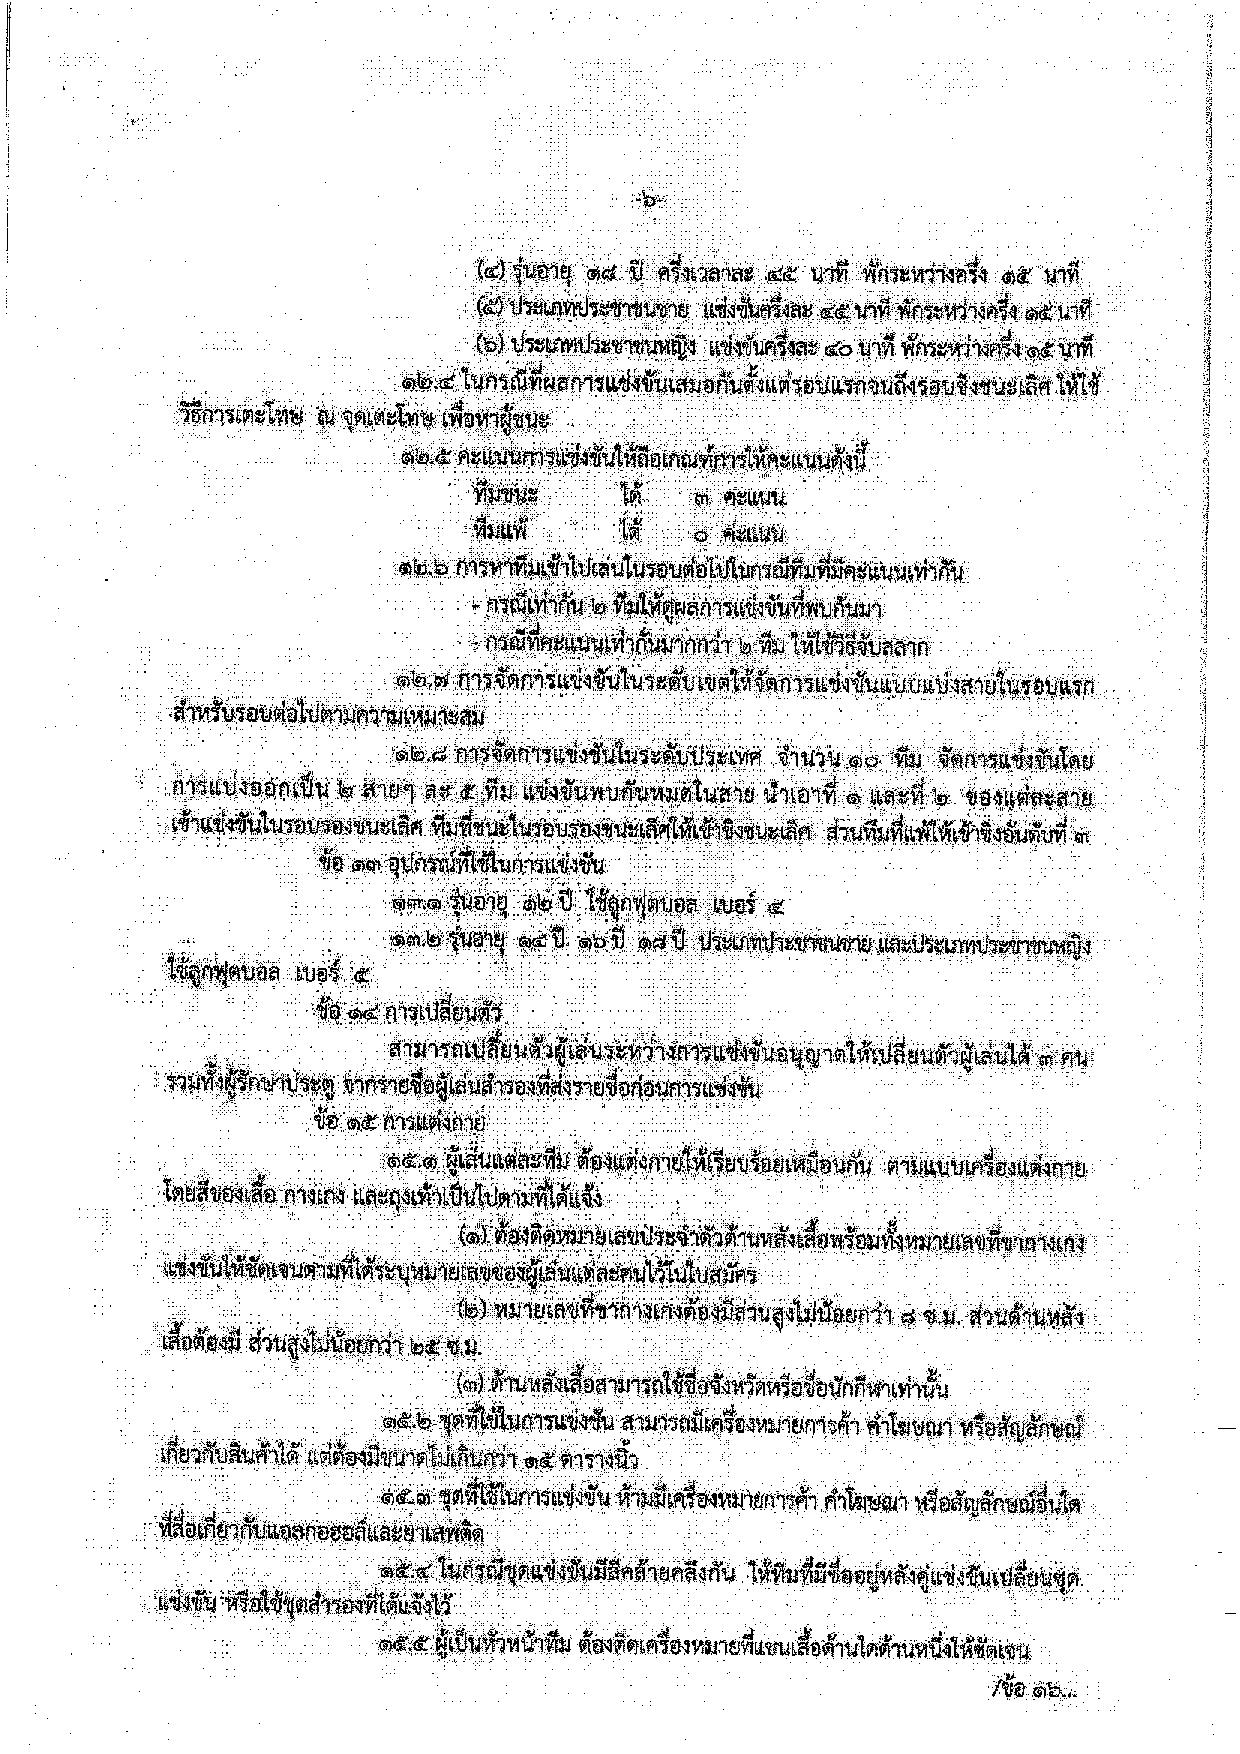 -๖-
(๔) รุ่นอายุ ๑๘ ปี ครึ่งเวลาละ ๔๕ นาที พักระหว่างครึ่ง ๑๕ นาที
(๕) ประเภทประชาชนชาย แข่งขันครึ่งละ ๔๕ นาที พักระหว่างครึ่ง ๑๕ นาที
(๖) ประเภทประชาชนหญิง แข่งขันครึ่งละ ๔๐ นาที พักระหว่างครึ่ง ๑๕ นาที
๑๒.๔ ในกรณีที่ผลการแข่งขันเสมอกันตั้งแต่รอบแรกจนถึงรอบชิงชนะเลิศ ให้ใช้
วิธีการเตะโทษ ณ จุดเตะโทษ เพื่อหาผู้ชนะ
๑๒.๕ คะแนนการแข่งขันให้ถือเกณฑ์การให้คะแนนดังนี้
ทีมชนะ ได้ ๓ คะแนน
ทีมแพ้ ได้ ๐ คะแนน
๑๒.๖ การหาทีมเข้าไปเล่นในรอบต่อไปในกรณีทีมที่มีคะแนนเท่ากัน
- กรณีเท่ากัน ๒ ทีมให้ดูผลการแข่งขันที่พบกันมา
- กรณีที่คะแนนเท่ากันมากกว่า ๒ ทีม ให้ใช้วิธีจับสลาก
๑๒.๗ การจัดการแข่งขันในระดับเขตให้จัดการแข่งขันแบบแบ่งสายในรอบแรก
สำหรับรอบต่อไปตามความเหมาะสม
๑๒.๘ การจัดการแข่งขันในระดับประเทศ จำนวน ๑๐ ทีม จัดการแข่งขันโดย
การแบ่งออกเป็น ๒ สายๆ ละ ๕ ทีม แข่งขันพบกันหมดในสาย นำเอาที่ ๑ และที่ ๒ ของแต่ละสาย
เข้าแข่งขันในรอบรองชนะเลิศ ทีมที่ชนะในรอบรองชนะเลิศให้เข้าชิงชนะเลิศ ส่วนทีมที่แพ้ให้เข้าชิงอันดับที่ ๓
ข้อ ๑๓ อุปกรณ์ที่ใช้ในการแข่งขัน
๑๓.๑ รุ่นอายุ ๑๒ ปี ใช้ลูกฟุตบอล เบอร์ ๔
๑๓.๒ รุ่นอายุ ๑๔ ปี ๑๖ ปี ๑๘ ปี ประเภทประชาชนชาย และประเภทประชาชนหญิง
ใช้ลูกฟุตบอล เบอร์ ๕
ข้อ ๑๔ การเปลี่ยนตัว
สามารถเปลี่ยนตัวผู้เล่นระหว่างการแข่งขันอนุญาตให้เปลี่ยนตัวผู้เล่นได้ ๓ คน
รวมทั้งผู้รักษาประตู จากรายชื่อผู้เล่นสำรองที่ส่งรายชื่อก่อนการแข่งขัน
ข้อ ๑๕ การแต่งกาย
๑๕.๑ ผู้เล่นแต่ละทีม ต้องแต่งกายให้เรียบร้อยเหมือนกัน ตามแบบเครื่องแต่งกาย
โดยสีของเสื้อ กางเกง และถุงเท้าเป็นไปตามที่ได้แจ้ง
(๑) ต้องติดหมายเลขประจำตัวด้านหลังเสื้อพร้อมทั้งหมายเลขที่ขากางเกง
แข่งขันให้ชัดเจนตามที่ได้ระบุหมายเลขของผู้เล่นแต่ละคนไว้ในใบสมัคร
(๒) หมายเลขที่ขากางเกงต้องมีส่วนสูงไม่น้อยกว่า ๘ ซ.ม. ส่วนด้านหลัง
เสื้อต้องมี ส่วนสูงไม่น้อยกว่า ๒๕ ซ.ม.
(๓) ด้านหลังเสื้อสามารถใช้ชื่อจังหวัดหรือชื่อนักกีฬาเท่านั้น
๑๕.๒ ชุดที่ใช้ในการแข่งขัน สามารถมีเครื่องหมายการค้า คำโฆษณา หรือสัญลักษณ์
เกี่ยวกับสินค้าได้ แต่ต้องมีขนาดไม่เกินกว่า ๑๕ ตารางนิ้ว
๑๕.๓ ชุดที่ใช้ในการแข่งขัน ห้ามมีเครื่องหมายการค้า คำโฆษณา หรือสัญลักษณ์อื่นใด
ที่สื่อเกี่ยวกับแอลกอฮอล์และยาเสพติด
๑๕.๔ ในกรณีชุดแข่งขันมีสีคล้ายคลึงกัน ให้ทีมที่มีชื่ออยู่หลังคู่แข่งขันเปลี่ยนชุด
แข่งขัน หรือใช้ชุดสำรองที่ได้แจ้งไว้
๑๕.๕ ผู้เป็นหัวหน้าทีม ต้องติดเครื่องหมายที่แขนเสื้อด้านใดด้านหนึ่งให้ชัดเจน
/ข้อ ๑๖...